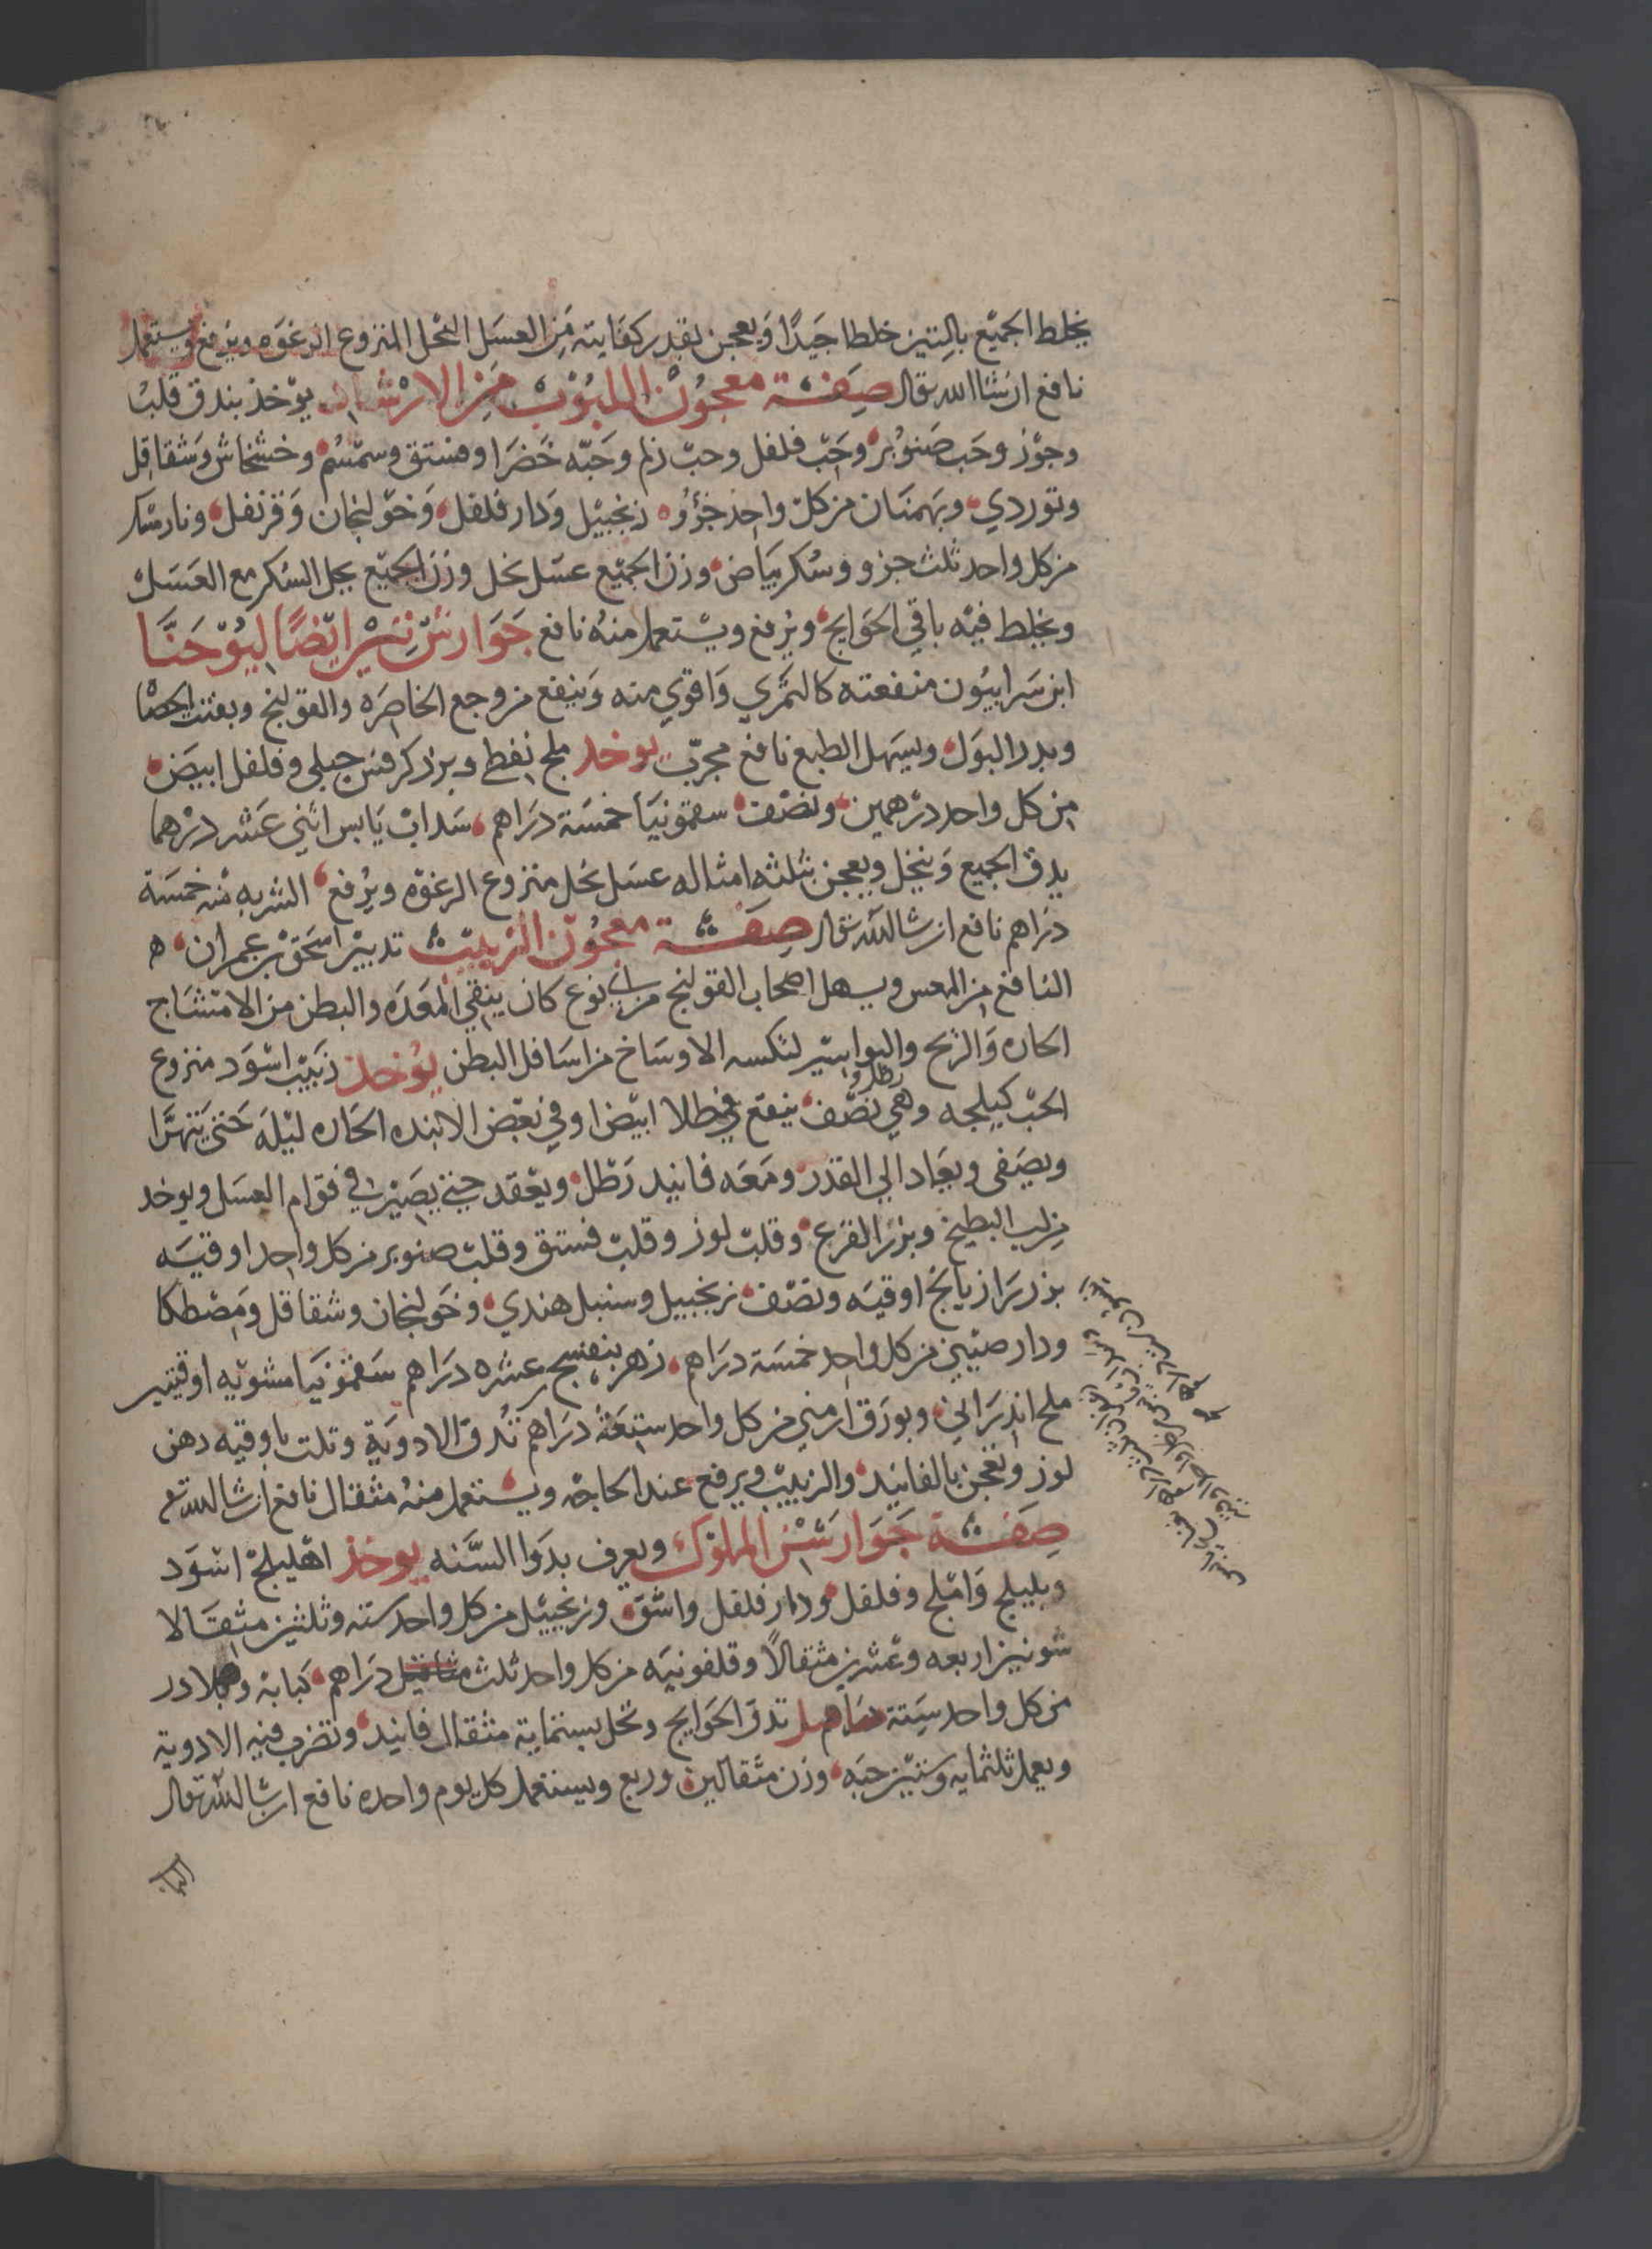 يخلط الجميع بالتين خلطا جيدا ويعجن بقدر كفايته من العسل النحل المنزوع الرغوه ويرفع ويستعمل
نافع ان شا الله تعال صفة معجون اللبوب من الارشاد يوخذ بندق قلب
وجوز وحب صنوبر وحب فلفل وحب زلم وحبه خضرا وفستق وسمسم وخشخاش وشقاقل
وتوردي وبهمنان من كل واحد جزؤ زنجبيل ودار فلفل وخولنجان وقرنفل ونارمشك
من كل واحد ثلث جزو وسكر بياض وزن الجميع عسل نحل وزن الجميع يحل السكر مع العسل
ويخلط فيه باقي الحوايج ويرفع ويستعمل منه نافع جوارشن نشير ايضا ليوحنا
ابن سرابيون منفعته كالتمري واقوي منه وينفع من وجع الخاصره والقولنج ويفتت الحصا
ويدر البول ويسهل الطبع نافع مجرب يوخد ملح نفطي وبزر كرفس جبلي وفلفل ابيض
من كل واحد درهمين ونصف سقمونيا خمسة دراهم سداب يابس اثني عشر درهما
يدق الجميع وينخل ويعجن بثلثه امثاله عسل نحل منزوع الرغوه ويرفع الشربه منه خمسة
دراهم نافع ان شا الله تعال صفة معجون الزبيب تدبير اسحق بن عمران
النافع من المعس ويسهل اصحاب القولنج من اي نوع كان ينقي المعده والبطن من الامتشاج
الحاره والريح والبواسير لنكسه الاوساخ من اسافل البطن يوخذ زبيب اسود منزوع
الحب كيلجه وهي رطل ونصف ينقع في طلا ابيض او في بعض الانبذه الحاره ليله حتى يتهرا
ويصفى ويعاد الي القدر ومعه فانيد رطل ويعقد حتي يصير في قوام العسل ويوخد
من لب البطيخ وبزر القرع وقلب لوز وقلب فستق وقلب صنوبر من كل واحد اوقيه
بزر رازيانج اوقيه ونصف زنجبيل وسنبل هندي وخولنجان وشقاقل ومصطكا
ودار صيني من كل واحد خمسة دراهم زهر بنفسج عشره دراهم سقمونيا مشويه اوقيتين
ملح اندراني وبورق ارمني من كل واحد سبعة دراهم تدق الادوية وتلت باوقيه دهن
لوز وتعجن بالفانيد والزبيب ويرفع عند الحاجة ويستعمل منه مثقال نافع ان شا الله تع
صفة جوارشن الملوك ويعرف بدوا السنه يوخذ اهليلج اسود
وبليلج واملج وفلفل ودار فلفل واشق وزنجبيل من كل واحد سته وثلثين مثقالا
شونيز اربعه وعشرين مثقالا وقلفونيه من كل واحد ثلث مثاقيل دراهم كبابة وبلادر
من كل واحد ستة دراهم تدق الحوايج وتحل بستماية مثقال فانيد وتضرب فيه الادوية
ويعمل ثلثمايه وستين حبه وزن مثقالين وربع ويستعمل كل يوم واحده نافع ان شا الله تعال